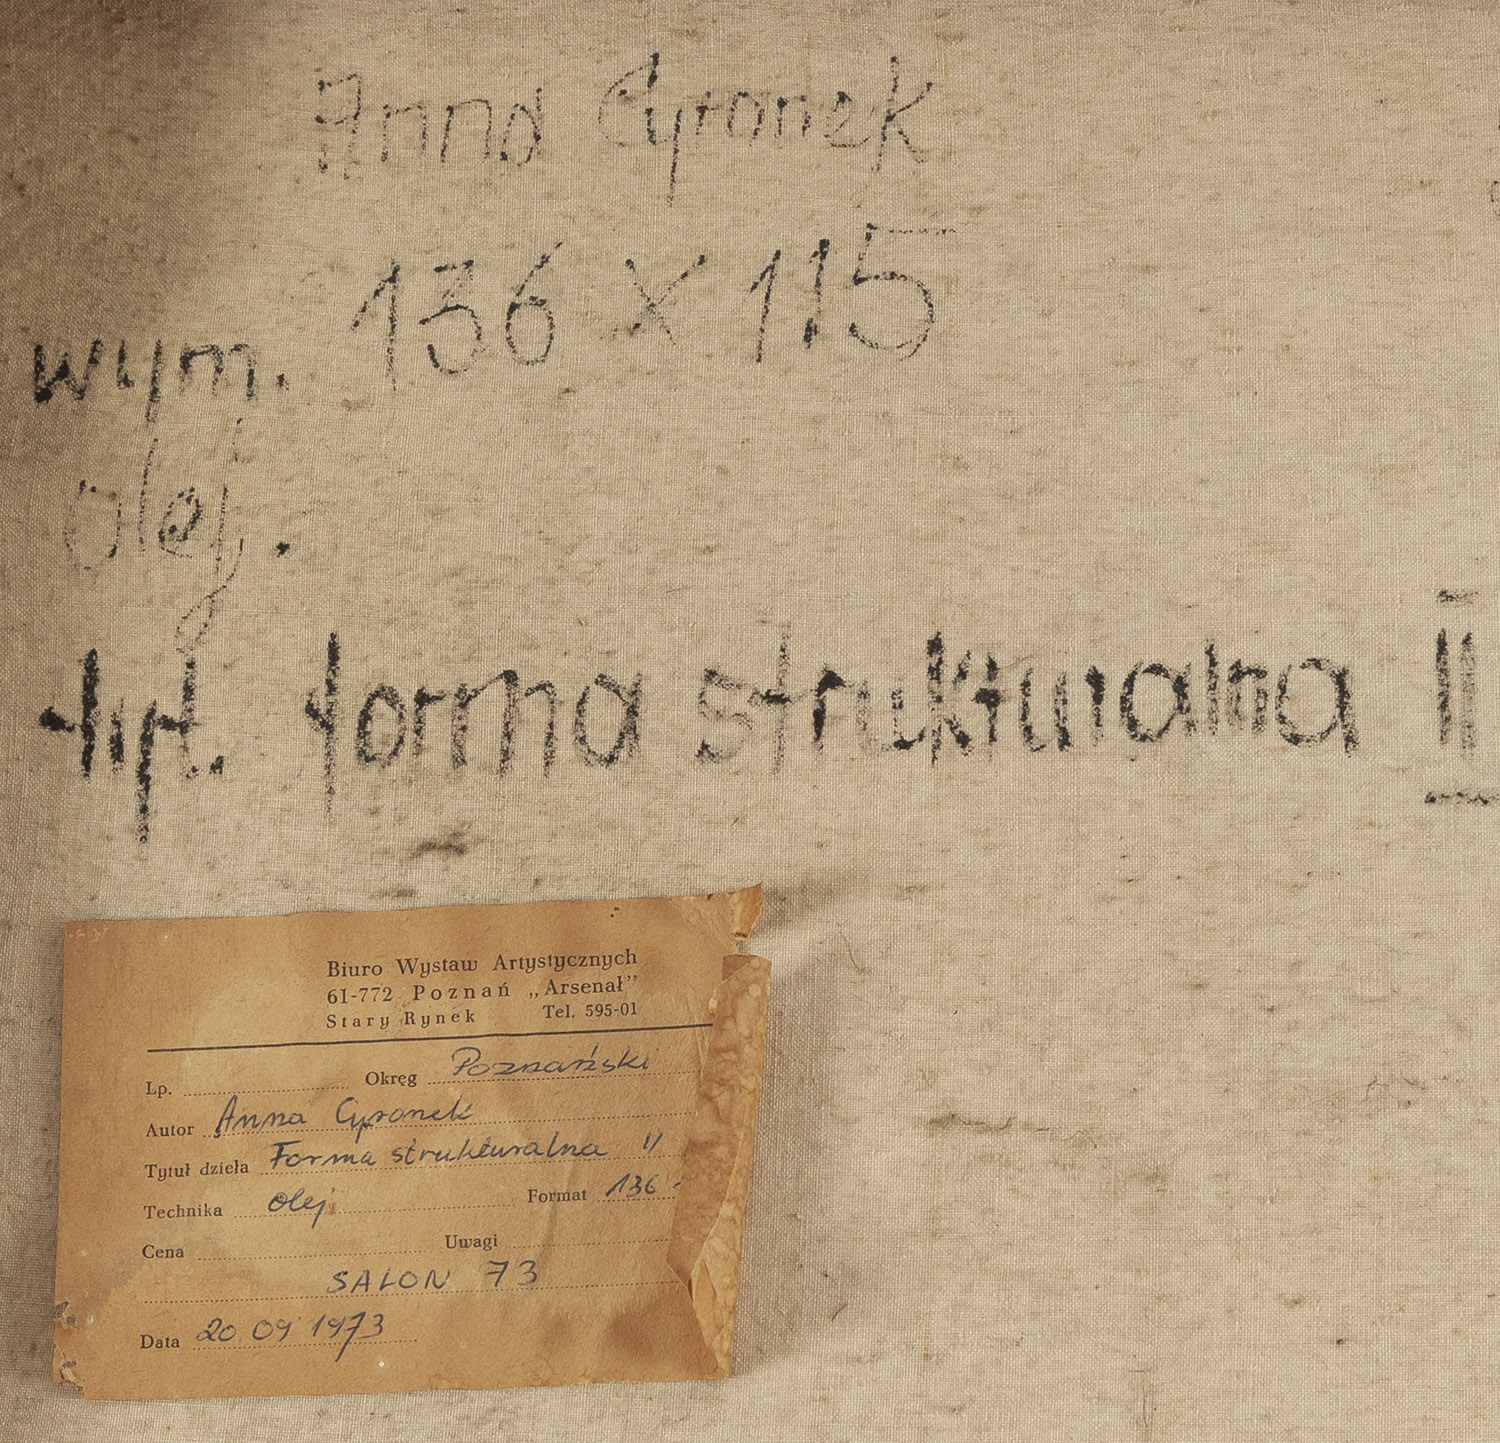 Anna Cyronek
wym. 136 x 115
olej.
tyt. forma strukturalna II
Biuro Wystaw Artystycznych
61-772 Poznań „Arsenał”
Stary Rynek Tel. 595-01
Lp. Okręg Poznański
Autor Anna Cyronek
Tytuł dzieła Forma strukturalna II
Technika olej Format 136 -
Cena Uwagi
SALON 73
Data 20 09 1973